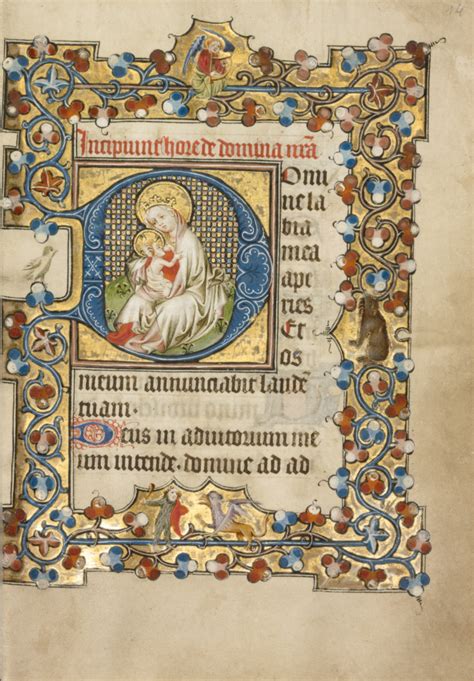 14
Incipiunt hore de domina nrā
Domi
ne la
bia
mea
ape
ries
Et
os
meum annunciabit laudē
tuam.
Deus in adiutorium me
um intende. domine ad ad